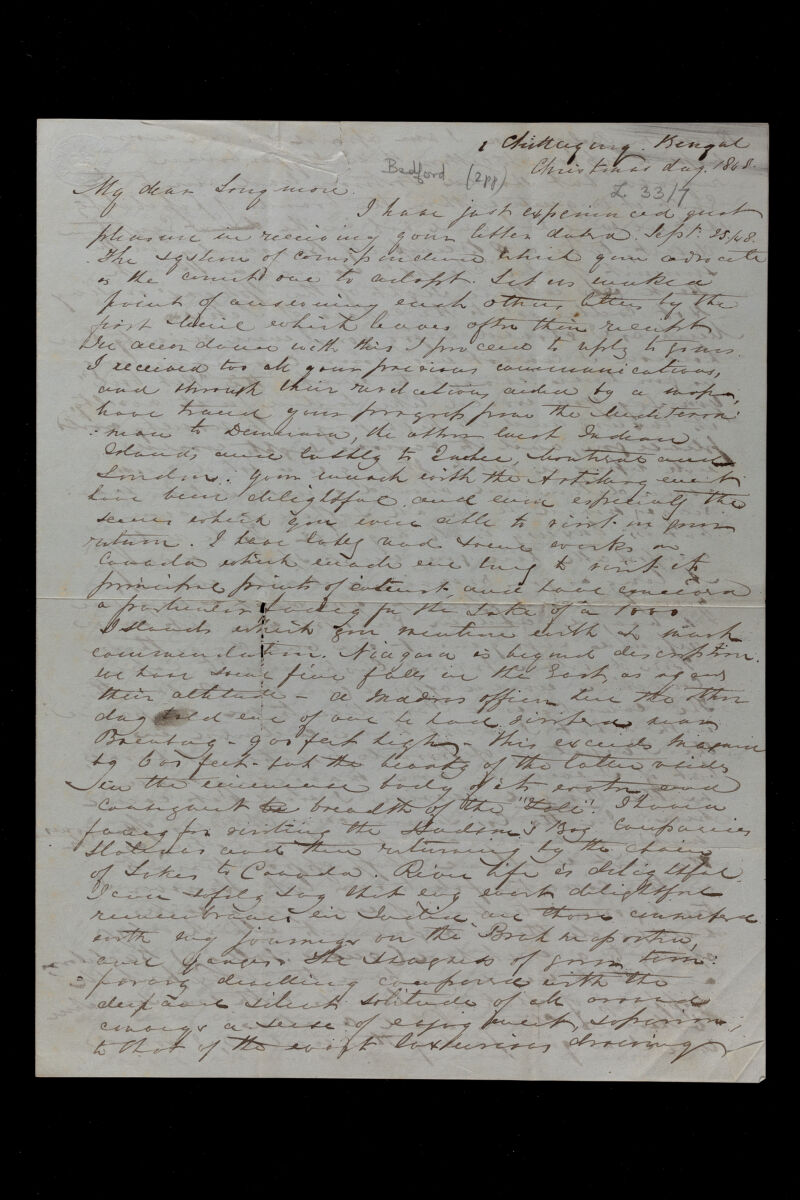 Chittagong. Bengal
Christmas day. 1848.
Bedford (2pp)
L 33/7
My dear Longmore.
I have just experienced great
pleasure in receiving your letter dated. Sept. 25/48.
The system of correspondence which you advocate
is the correct one to adopt. Let us make a
point of answering each others letters by the
first Mail which leaves after their receipt
In accordance with this I proceed to reply to yours.
I received too all your previous communications,
and through their aided by a map,
have traced your progress from the Mediterra:
:nean to Demerara, the other West Indian
Islands and lastly to Quebec, Montreal and
London. Your march with the Artillery must
have been delightful, and even especially the
scenes which you were able to visit in your
return. I have lately read some works on
Canada which made me long to visit its
principal points of interest and have conceived
a particular fancy for the Lake of a 1000
Islands which you mention with so much
commendation. Niagara is beyond description.
We have some fine falls in the East as regards
their altitude - a Madras officer here the other
day told me of one he had visited near
900 feet high - this exceeds Niagara
by feet - but the beauty of the latter resides
in the immense body of its water and
consequent breadth of the "Fall". I have a
fancy for visiting the Hudson's Bay Companies
Stations and then returning by the chain
of Lakes to Canada. River life is delightful
I can safely say that my most delightful
remembrances in India are those connected
with my journeys on the Brahmapootra,
and Ganges. The snugness of your tem:
:porary dwelling compared with the
deep and silent solitude of all around
conveys a sense of enjoyment superior
to that of the most luxurious drawing